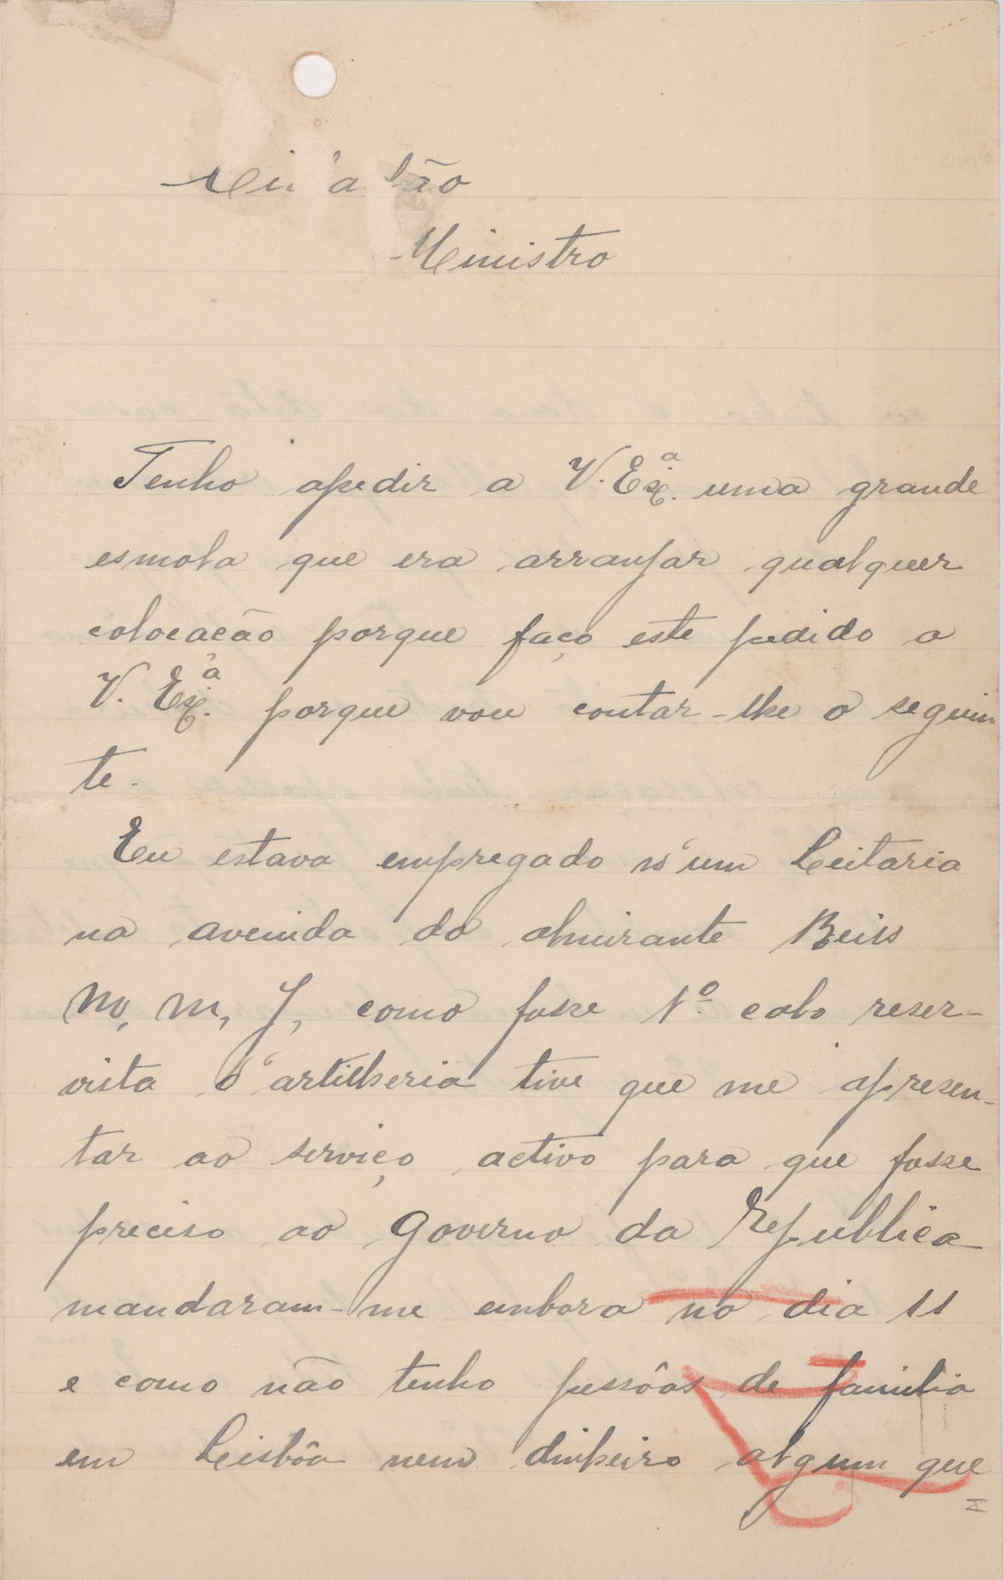 Ministro
Tenho apedir a V. Exª. uma grande
esmola que era arranjar qualquer
colocacão porque faço este pedido a
V. Exª. porque vou contar-lhe o seguin
te.
Eu estava empregado n'um Leitaria
na avenida do almirante Reiss
M, J, como fosse 1º cabo reser-
vista d'artilheria tive que me apresen-
tar ao serviço activo para que fosse
preciso ao governo da Republica
mandaram-me embora no dia 11
e como não tenho pessôas de familia
em Leisbôa nem dinheiro algum que